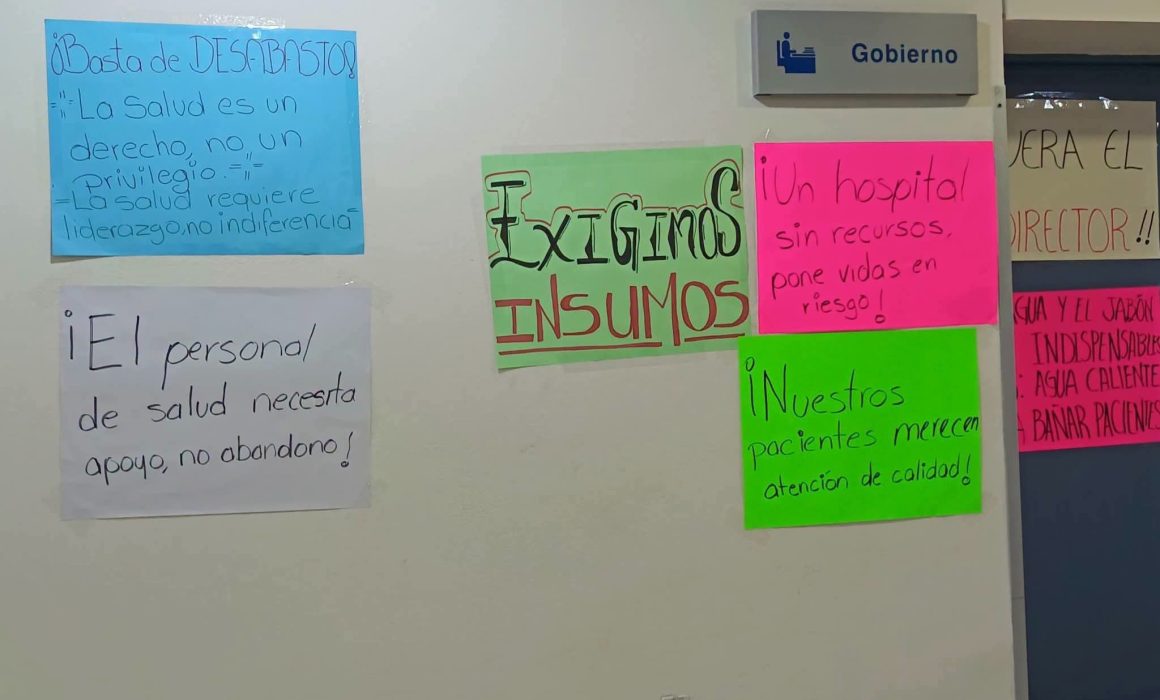 ¡Basta de DESABASTO!
La Salud es un
derecho, no un
privilegio.
La salud requiere
liderazgo, no indiferencia
¡El personal
de salud necesita
apoyo, no abandono!
EXIGIMOS
INSUMOS
Gobierno
¡Un hospital
sin recursos,
pone vidas en
riesgo!
¡Nuestros
pacientes merecen
atención de calidad!
UERA EL
DIRECTOR!!
AGUA Y EL JABÓN
INDISPENSABLES
AGUA CALIENTE
BAÑAR PACIENTES